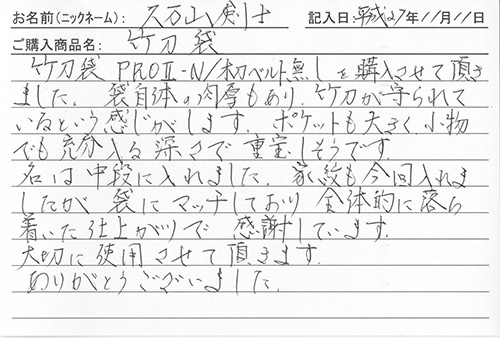 お名前(ニックネーム): 久万山剣士 記入日:平成27年11月11日
ご購入商品名: 竹刀袋
竹刀袋 PROⅡ-N/木刀ベルト無しを購入させて頂き
ました。袋自体の肉厚もあり、竹刀が守られて
いるという感じがします。ポケットも大きく、小物
でも充分入る深さで重宝しそうです。
名は中段に入れました。家紋も今回入れま
したが袋にマッチしており全体的に落ち
着いた仕上がりで感謝しています。
大切に使用させて頂きます。
ありがとうございました。